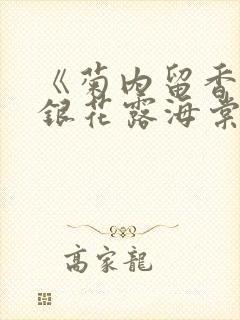 《菊内留香
銀花露海棠
高家龍